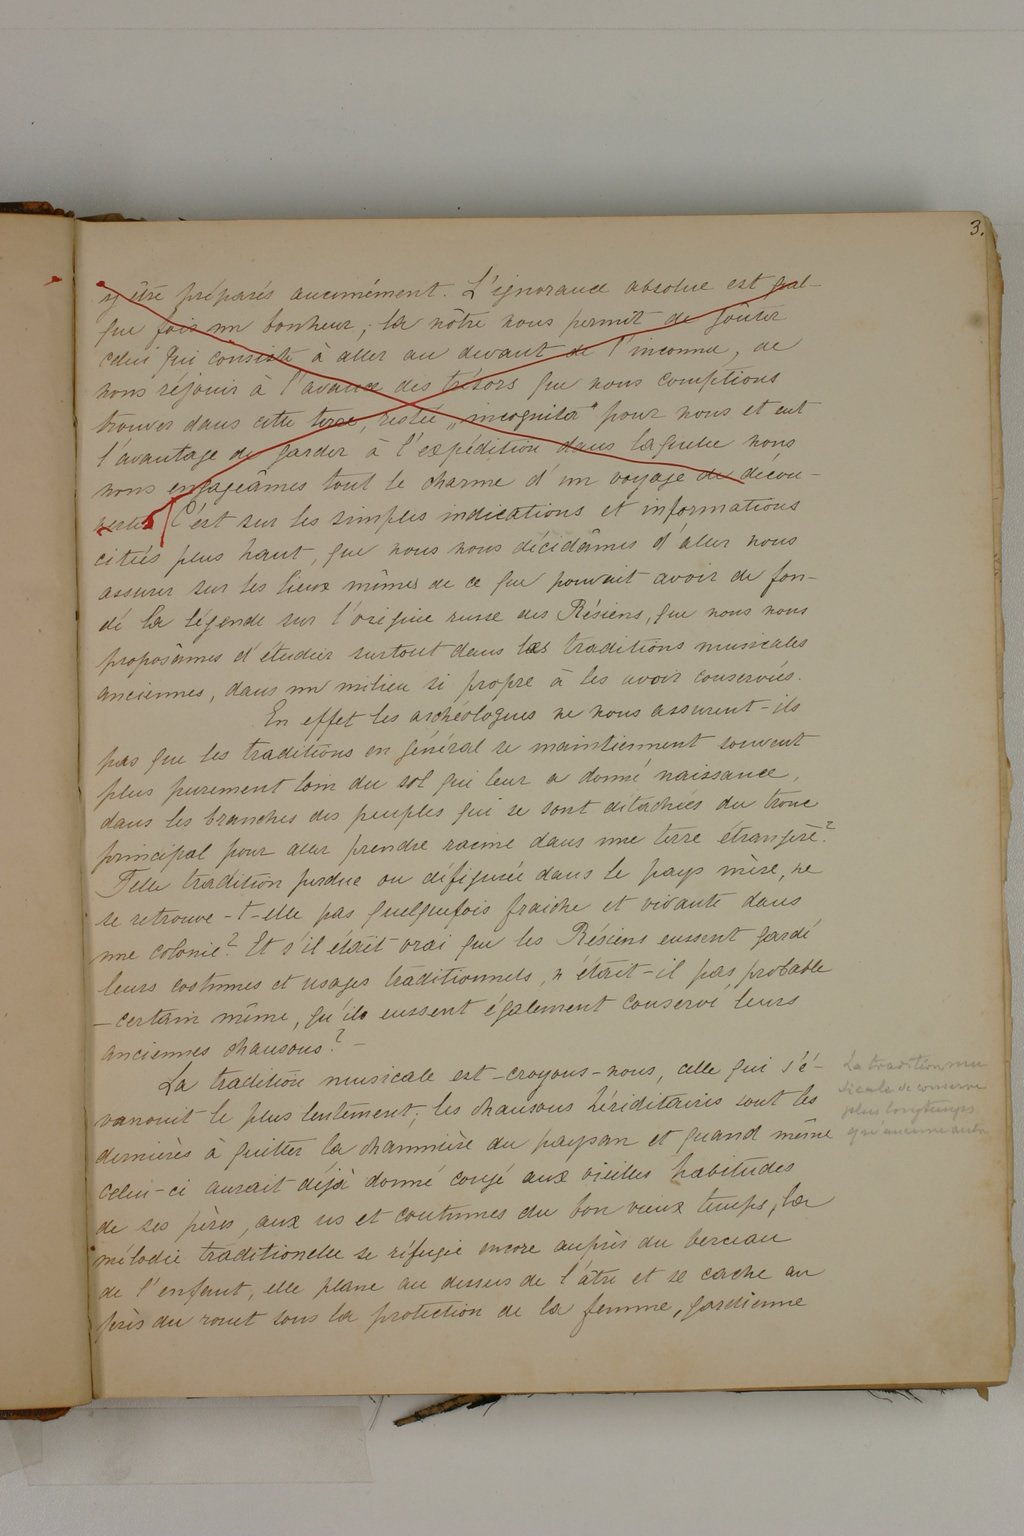 3.
y être préparés aucunément. L'ignorance absolue est quel-
que fois un bonheur; la nôtre nous permit de goûter
celui qui consiste à aller au devant de l'inconnu, de
nous réjouir à l'avance des trésors que nous comptions
trouver dans cette terre, restée „incognita" pour nous et eut
l'avantage de garder à l'expédition dans laquelle nous
nous engageâmes tout le charme d'un voyage de décou-
verte. C'est sur les simples indications et informations
citées plus haut, que nous nous décidâmes d'aller nous
assurer sur les lieux mêmes de ce que pouvait avoir de fon-
dé la légende sur l'origine russe des Résiens, que nous nous
proposâmes d'étudier surtout dans les traditions musicales
anciennes, dans un milieu si propre à les avoir conservés.
En effet les archéologues ne nous assurent-ils
pas que les traditions en général se maintiennent souvent
plus purement loin du sol qui leur a donné naissance,
dans les branches des peuples qui se sont détachées du tronc
principal pour aller prendre racine dans une terre étrangère?
Telle tradition perdue ou défigurée dans le pays mère, ne
se retrouve-t-elle pas quelquefois fraiche et vivante dans
une colonie? Et s'il était vrai que les Résiens eussent gardé
leurs costumes et usages traditionnels, n'était-il pas probable
-certain même, qu'ils eussent également conservé leurs
anciennes chansons? -
La tradition musicale est-croyons-nous, celle qui s'é-
vanouit le plus lentement; les chansons héréditaires sont les
dernières à quitter la chaumière du paysan et quand même
celui-ci aurait déjà donné congé aux vieilles habitudes
de ses pères, aux us et coutumes du bon vieux temps, la
mélodie traditionelle se réfugie encore auprès du berceau
de l'enfant, elle plane au dessus de l'âtre et se cache au
près du rouet sous la protection de la femme, gardienne
La tradition mu
sicale se conserve
plus longtemps
qu'aucune autre